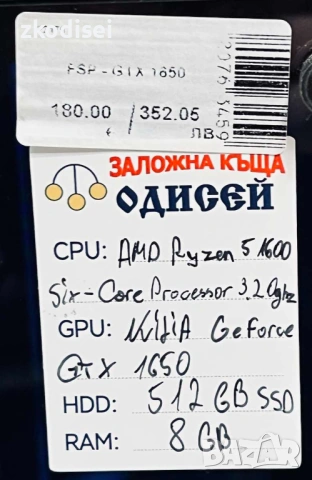 zkodisei
FSP - GTX 1650
180.00 / 352.05
€ ЛВ
ЗАЛОЖНА КЪЩА
ОДИСЕЙ
CPU: AMD Ryzen 5 1600
Six-Core Processor 3.20ghz
GPU: NViJiA GeForce
GTX 1650
HDD: 512 GB SSD
RAM: 8 GB
bazar